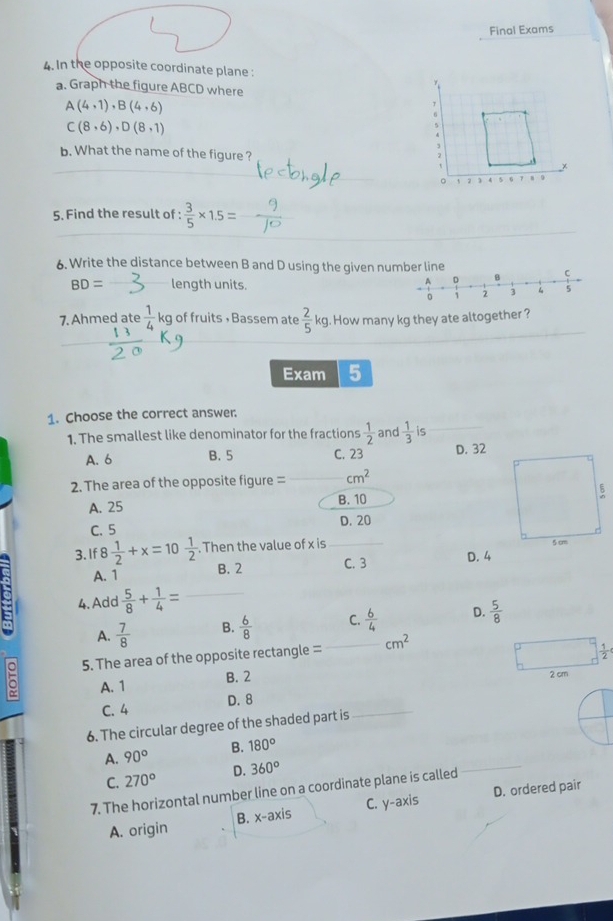 Final Exams
4. In the opposite coordinate plane :
a. Graph the figure ABCD where
A (4 , 1) , B (4 , 6)
C (8 , 6) , D (8 , 1)
b. What the name of the figure ?
rectangle
y
7
6
5
4
3
2
1
0 1 2 3 4 5 6 7 8 9
x
5. Find the result of : 3/5 × 1.5 = 9/10
6. Write the distance between B and D using the given number line
BD = 3 length units.
A D B C
0 1 2 3 4 5
7. Ahmed ate 1/4 kg of fruits , Bassem ate 2/5 kg. How many kg they ate altogether ?
13/20 Kg
Exam 5
1. Choose the correct answer.
1. The smallest like denominator for the fractions 1/2 and 1/3 is
A. 6 B. 5 C. 23 D. 32
2. The area of the opposite figure = cm²
A. 25 B. 10
C. 5 D. 20
5 cm
5 cm
3. If 8 1/2 + x = 10 1/2. Then the value of x is
A. 1 B. 2 C. 3 D. 4
4. Add 5/8 + 1/4 =
A. 7/8 B. 6/8 C. 6/4 D. 5/8
5. The area of the opposite rectangle = cm²
A. 1 B. 2
C. 4 D. 8
1/2
2 cm
6. The circular degree of the shaded part is
A. 90° B. 180°
C. 270° D. 360°
7. The horizontal number line on a coordinate plane is called
A. origin B. x-axis C. y-axis D. ordered pair
Butterball
ROTO